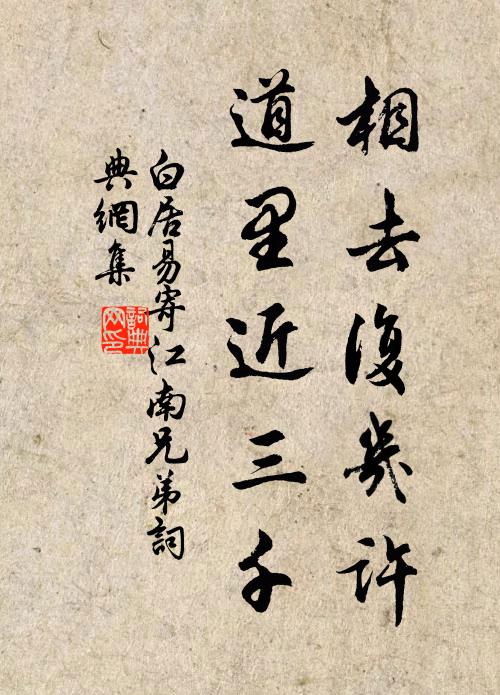 相去復幾許
道里近三千
白居易寄江南兄弟詞
典網集
詞典網印